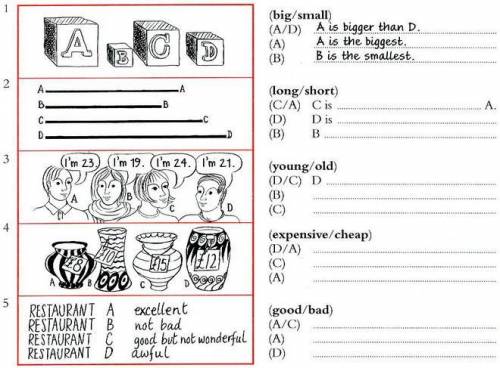 1
A B C D
(big/small)
(A/D) A is bigger than D.
(A) A is the biggest.
(B) B is the smallest.
2
A A
B B
C C
D D
(long/short)
(C/A) C is ........ A.
(D) D is ........
(B) B ........
3
I'm 23. I'm 19. I'm 24. I'm 21.
A B C D
(young/old)
(D/C) D ........
(B) ........
(C) ........
4
£8 £10 £15 £12
A B C D
(expensive/cheap)
(D/A) ........
(C) ........
(A) ........
5
RESTAURANT A excellent
RESTAURANT B not bad
RESTAURANT C good but not wonderful
RESTAURANT D awful
(good/bad)
(A/C) ........
(A) ........
(D) ........